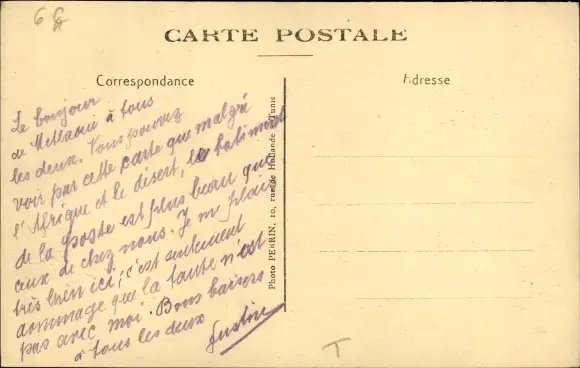 6
CARTE POSTALE
Correspondance
Adresse
Le bonjour
de Metlaoui à tous
les deux. Vous pouvez
voir par cette carte que malgré
l'Afrique et le désert, le batiment
de la poste est plus beau que
ceux de chez nous. Je me plais
très bien ici, c'est seulement
dommage que la tante n'est
pas avec moi. Bons baisers
à tous les deux
Photo PERRIN, 10, rue de Hollande - Tunis
T